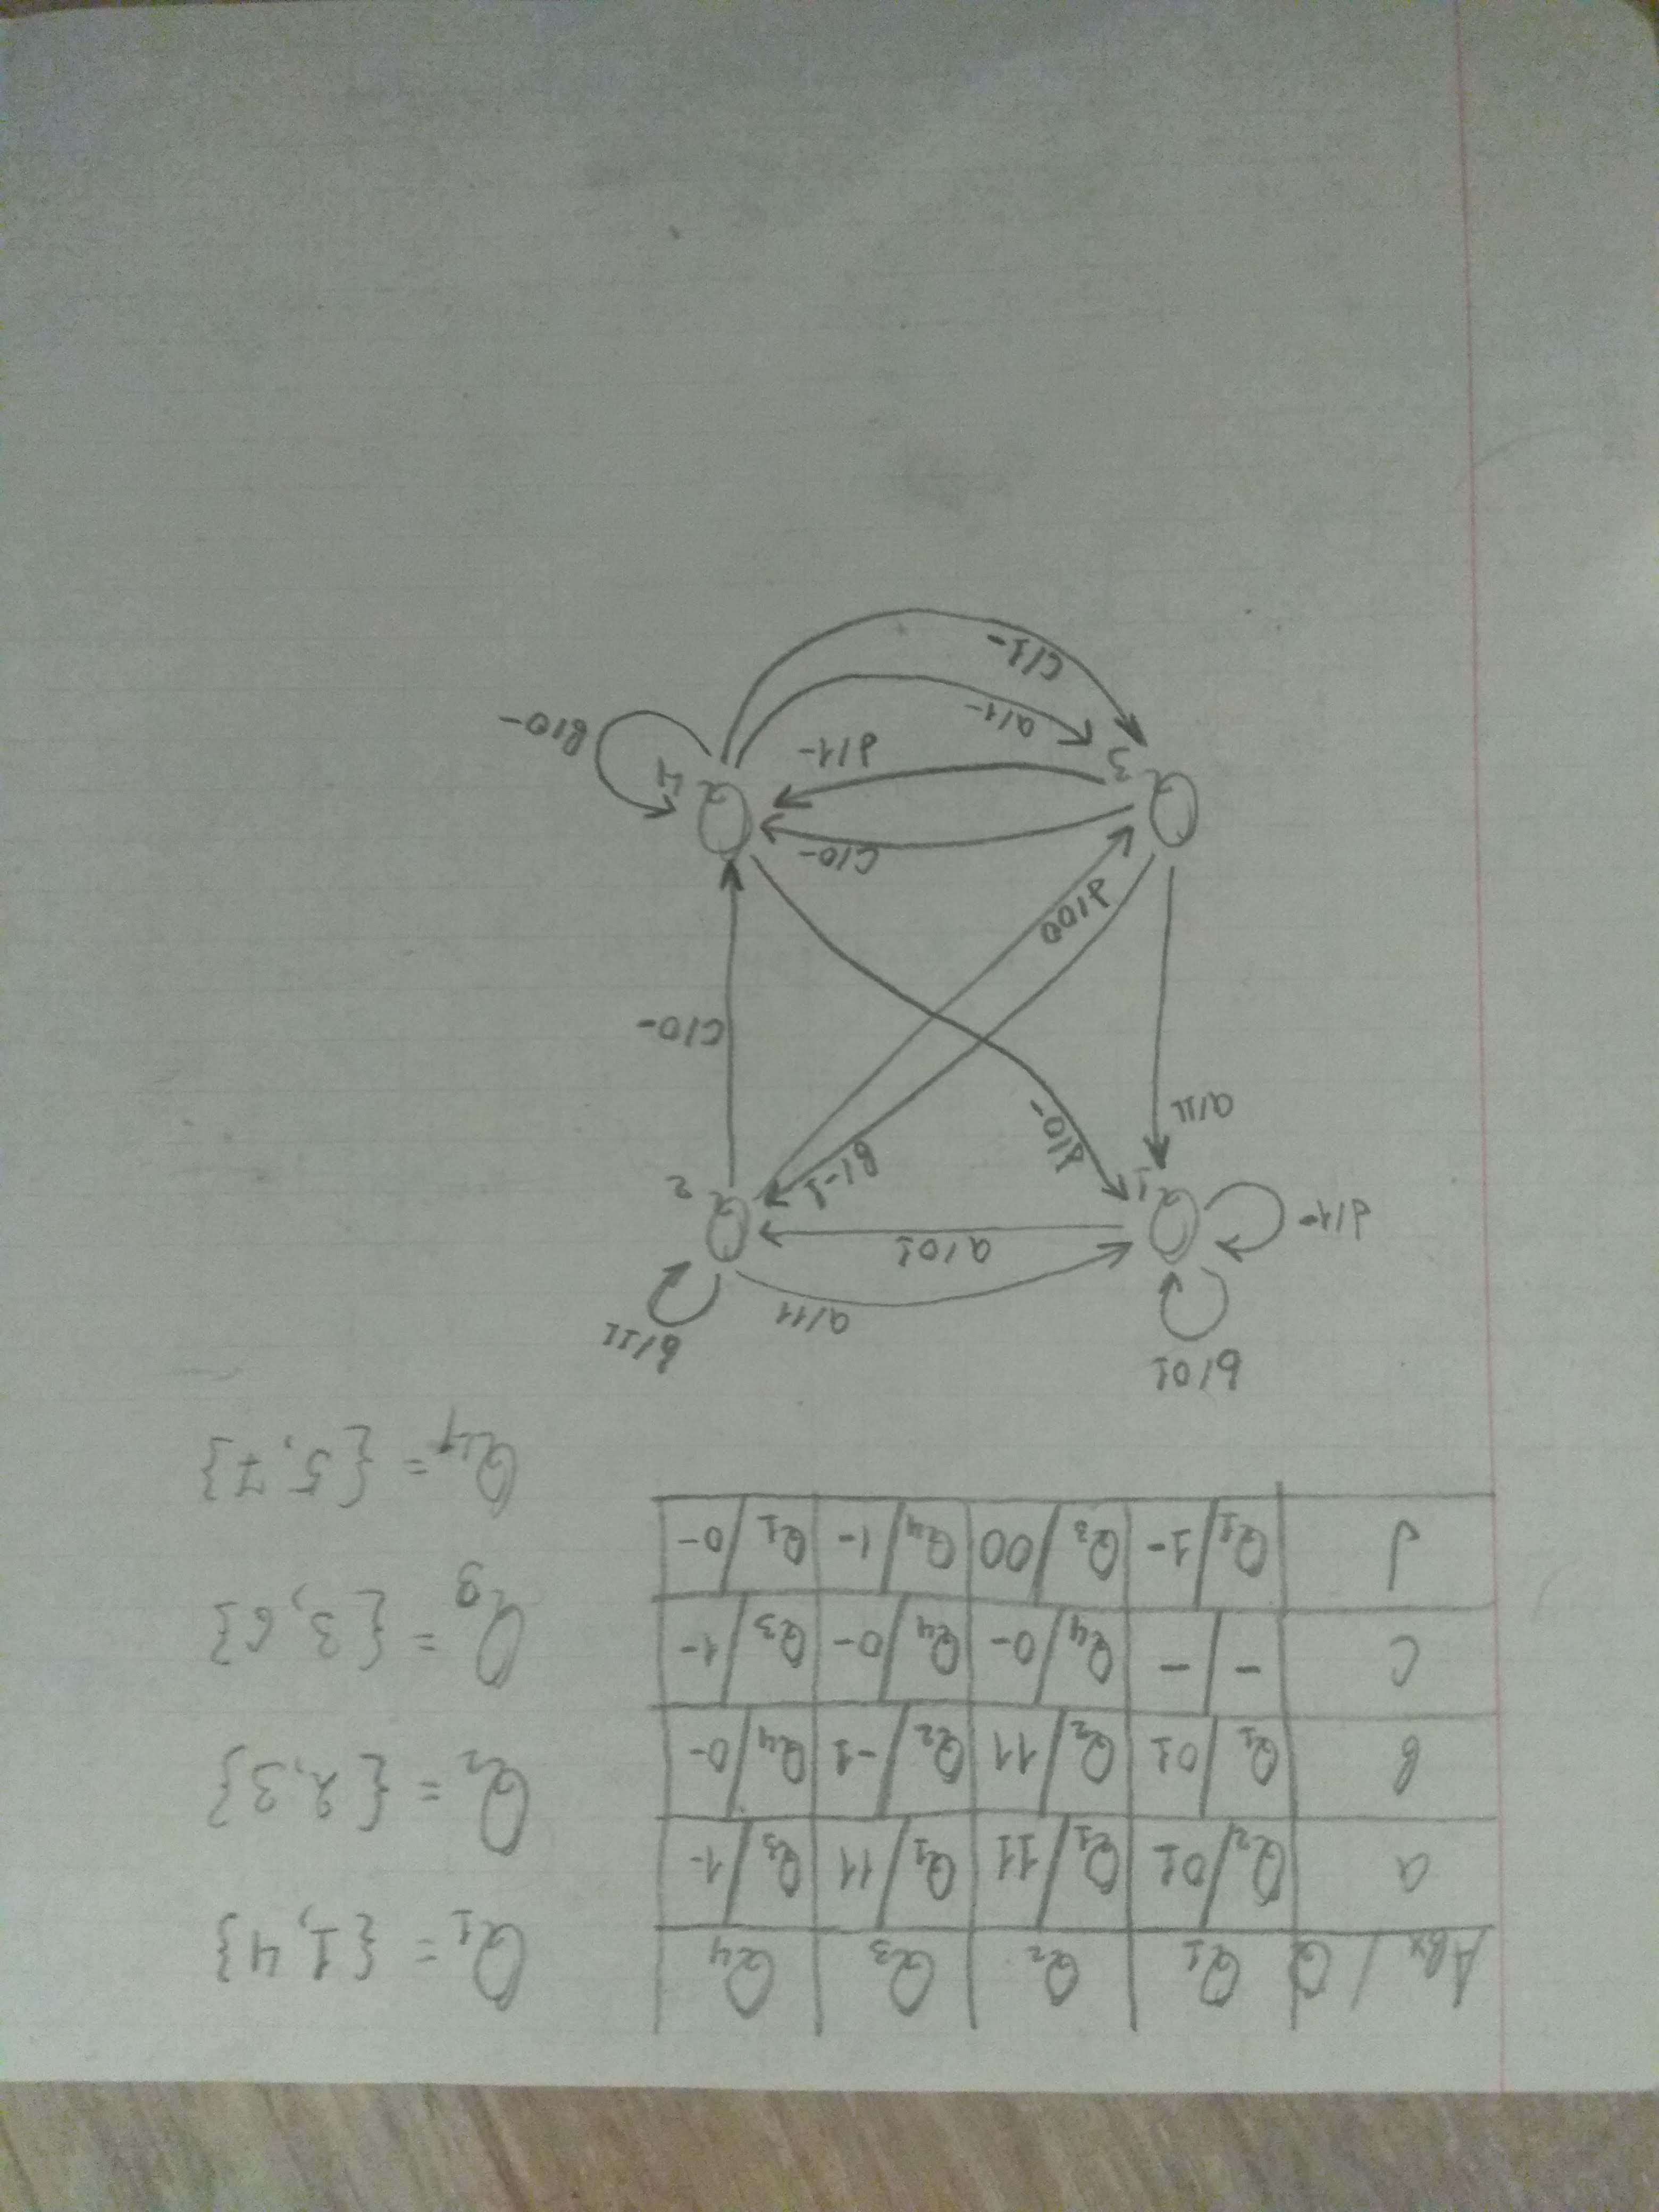 Aвх / Q Q1 Q2 Q3 Q4
a Q2/01 Q1/11 Q1/11 Q3/1-
в Q1/01 Q2/11 Q2/-1 Q4/0-
c -/- Q4/0- Q4/0- Q3/1-
d Q1/1- Q3/00 Q4/1- Q1/0-
Q1 = {1,4}
Q2 = {2,3}
Q3 = {3,6}
Q4 = {5,7}
b/01
в/11
a/11
a/01
d/1-
Q1
Q2
в/-1
d/0-
a/11
c/0-
d/00
c/0-
Q3
Q4
d/1-
a/1-
в/0-
c/1-